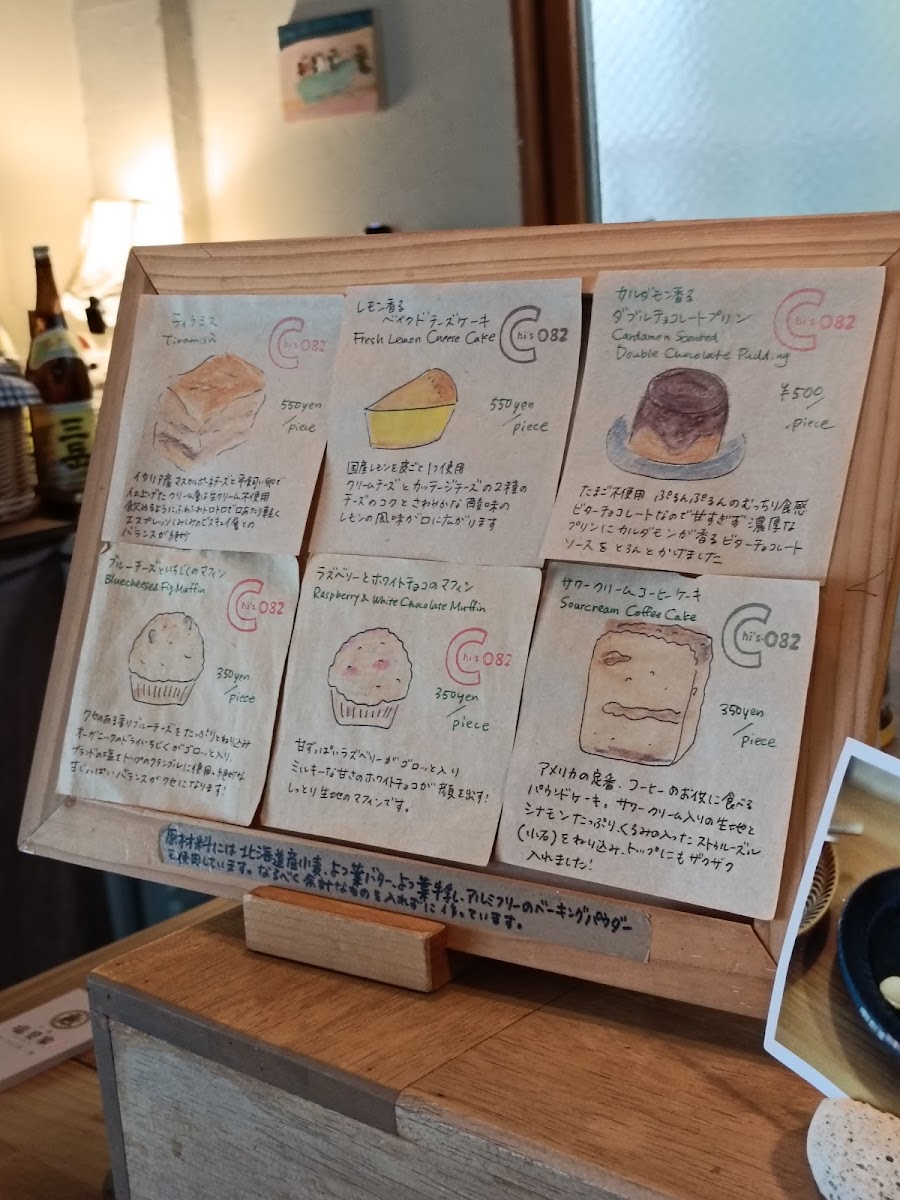 ティラミス
Tiramisu
Chi's 082
550yen
/piece
イタリア産マスカルポーネチーズと平飼い卵で
仕上げたクリーム層は生クリーム不使用
飲めるようにふわふわトロトロで口あたり軽く
エスプレッソじみじみのビスキュイ層との
バランスが絶妙
レモン香る
ベイクドチーズケーキ
Fresh Lemon Cheese Cake
Chi's 082
550yen
/piece
国産レモンを皮ごと1つ使用
クリームチーズとカッテージチーズの2種の
チーズのコクとさわやかな酸味の
レモンの風味が口に広がります
カルダモン香る
ダブルチョコレートプリン
Cardamon Scented
Double Chocolate Pudding
Chi's 082
¥500/
piece
たまご不使用 ぷるんぷるんのむっちり食感
ビターチョコレートなので甘すぎず濃厚な
プリンにカルダモンが香るビターチョコレート
ソースをとろんとかけました
ブルーチーズといちじくのマフィン
Bluecheese&Fig Muffin
Chi's 082
350yen
/piece
クセのある香りブルーチーズをたっぷりとねり込み
オーガニックのドライいちじくがゴロッと入り
ゲランドの塩をトップのクランブルに使用、絶妙な
甘じょっぱいバランスがクセになります!
ラズベリーとホワイトチョコのマフィン
Raspberry & White Chocolate Muffin
Chi's 082
350yen
/piece
甘ずっぱいラズベリーがゴロッと入り
ミルキーな甘さのホワイトチョコが顔を出す!
しっとり生地のマフィンです。
サワークリームコーヒーケーキ
Sourcream Coffee Cake
Chi's 082
350yen
/piece
アメリカの定番、コーヒーのお供に食べる
パウンドケーキ。サワークリーム入りの生地と
シナモンたっぷり、くるみの入ったストゥルーズル
(小石)をねり込み、トップにもザクザク
入れました!
原材料には北海道産小麦、よつ葉バター、よつ葉牛乳、アルミフリーのベーキングパウダー
を使用しています。なるべく余計なものを入れずに作っています。